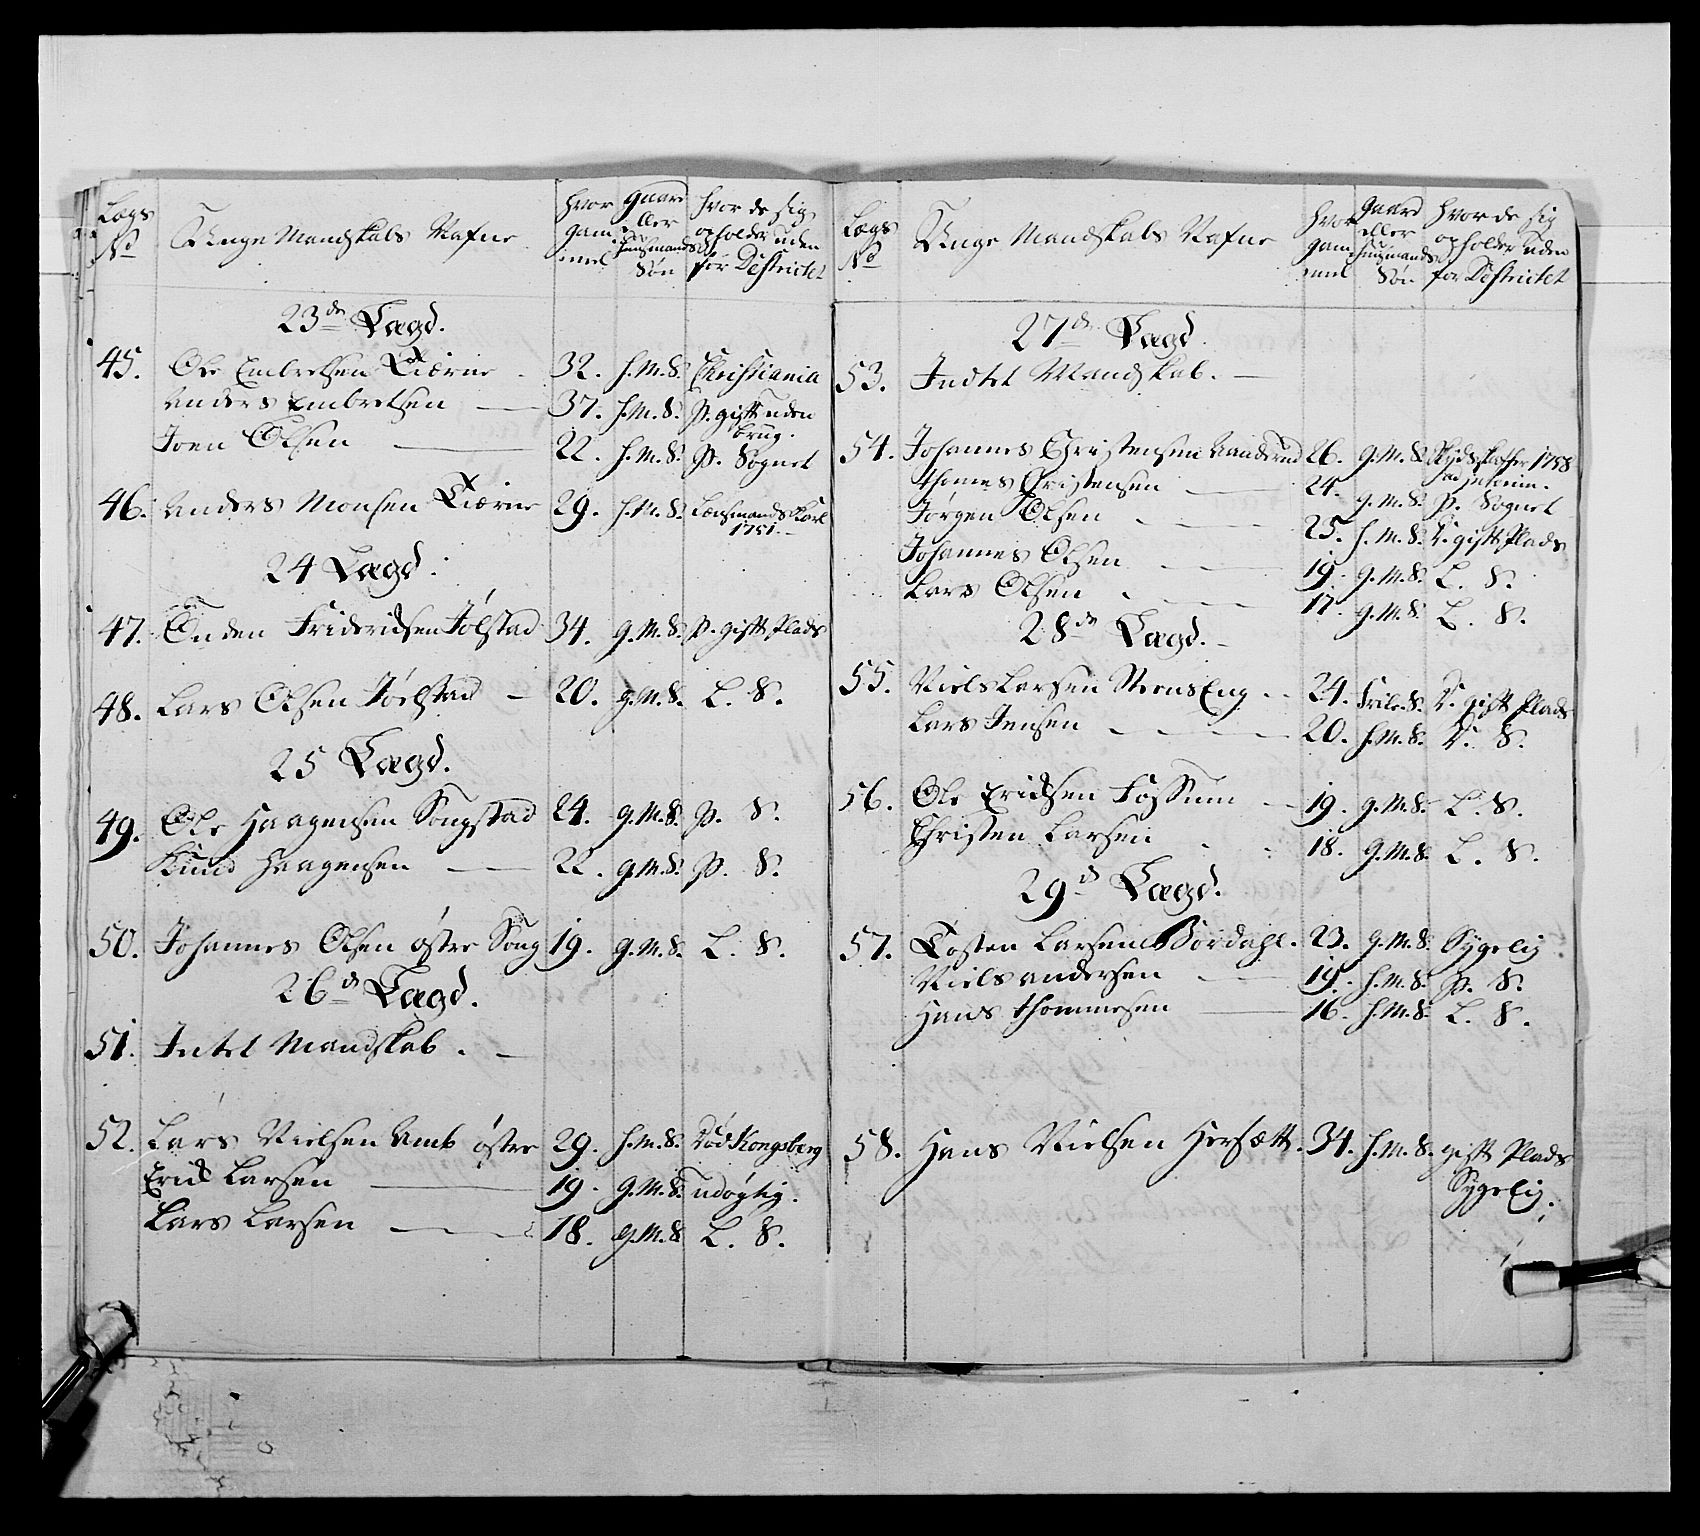 Lægs No Unge Mandskabs Nafne hvor gammel gaard eller huusmands Søn hvor de sig opholder uden for Destrictet
23de Lægd.
45. Ole Embretsen Kiærne 32. h.M.S. Christiania
Anders Embretsen 37. h.M.S. P. gift uden brug.
Joen Olsen 22. h.M.S. P. Sognet
46. Anders Monsen Kiærne 29. h.M.S. Lænsmands Karl 1751.
24 Lægd.
47. Enden Fridericksen Jølstad 34. g.M.S. P. gift Plads
48. Lars Olsen Jølstad 20. g.M.S. L. S.
25 Lægd.
49. Ole Haagensen Songstad 24. g.M.S. P. S.
Knud Haagensen 22. g.M.S. P. S.
50. Johannes Olsen østre Song 19. g.M.S. L. S.
26d Lægd.
51. Intet Mandskab.
52. Lars Nielsen Amb østre 29. h.M.S. Død Kongsberg
Erick Larsen 19. g.M.S. udøgtig.
Lars Larsen 18. g.M.S. L. S.
Lægs No Unge Mandskabs Nafne hvor gammel gaard eller huusmands Søn hvor de sig opholder uden for Destrictet
27de Lægd.
53. Indtet Mandskab.
54. Johannes Christensen Aanderud 26. g.M.S. 1758
Thomes Christensen 24. g.M.S. P. Sognet
Jørgen Olsen 25. h.M.S. gift Plads
Johannes Olsen 19. g.M.S. L. S.
Lars Olsen 17. g.M.S. L. S.
28de Lægd.
55. Niels Larsen Steens Eng 24. Frile.S. gift Plads
Lars Jensen 20. h.M.S. S.
56. Ole Ericksen Fossum 19. g.M.S. L. S.
Christen Larsen 18. g.M.S. L. S.
29d Lægd.
57. Tosten Larsen Børdahl. 23. g.M.S. Sygelig
Niels Andersen 19. h.M.S. P. S.
Hans Thommesen 16. h.M.S. L. S.
58. Hans Nielsen Hersætt. 34. h.M.S. gift Plads
Sygelig.